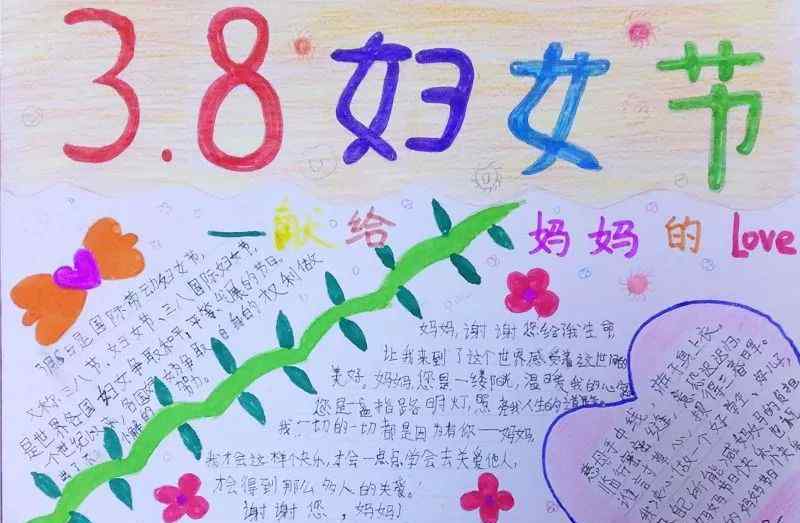 3.8妇女节
一献给妈妈的love
3月8日是国际劳动妇女节,
又称:三八节、妇女节、三八国际妇女节,
是世界各国妇女争取和平,平等,发展的节日。
个世纪以来,各国妇女为争取自身的权利做
努力。
妈妈,谢谢您给我生命
让我来到了这个世界感受着这世间的
美好,妈妈,您是一缕阳光,温暖我的心
您是一盏指路明灯,照亮我人生的道路
我一切的一切都是因为有你——妈妈
我才会这样个快乐,才会一点点学会去关爱他人,
才会得到那么多人的关爱。
谢谢您,妈妈!
慈母手中线,游子身上衣,
临行密密缝,意恐迟迟归。
谁言寸草心,报得三春晖。
我决心做一个好学生,好